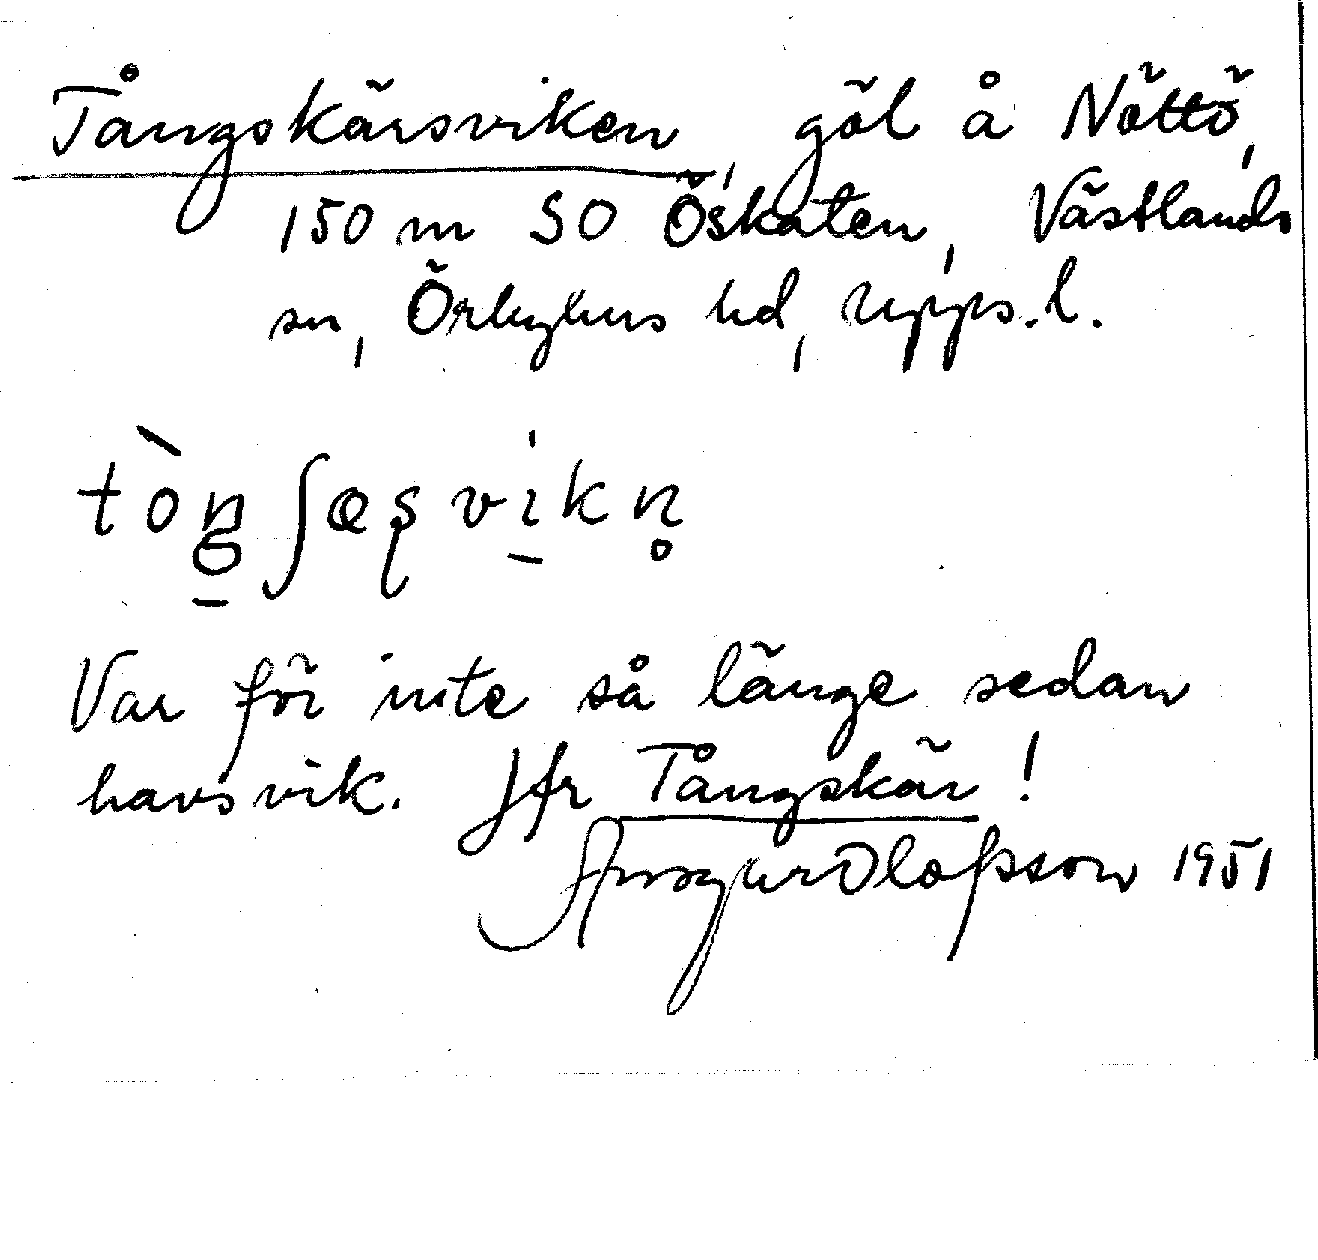 Tångskärsviken, göl å Nöttö,
150 m SO Öskaten, Västlands
sn, Örbyhus hd, Upps. l.
tòŋʃæʂvikn̥
Var för inte så länge sedan
havsvik. Jfr Tångskär!
Ansgur Olofsson 1951